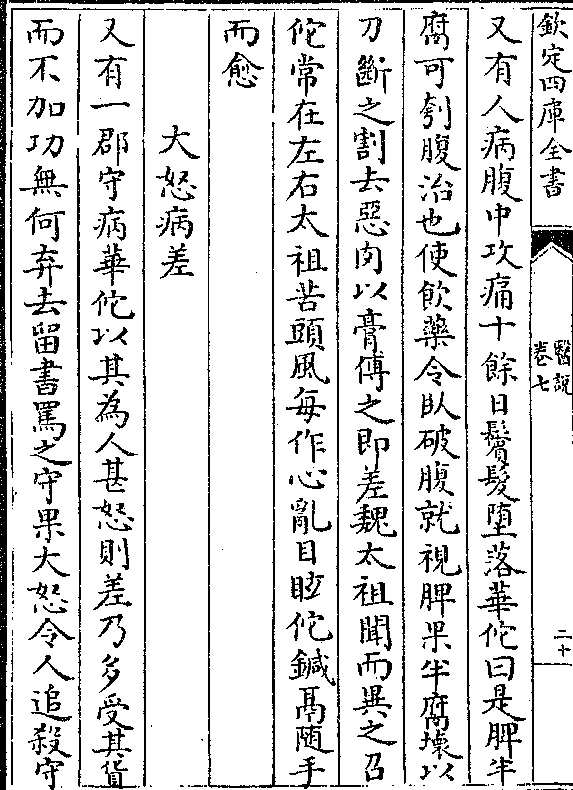 欽定四庫全書
醫説
卷七
二十
又有人病腹中攻痛十餘日鬢髮墮落華佗曰是脾半
腐可刳腹治也使飲藥令臥破腹就視脾果半腐壞以
刀斷之割去惡肉以膏傅之即差魏太祖聞而異之召
佗常在左右太祖苦頭風每作心亂目眩佗鍼鬲随手
而愈
大怒病差
又有一郡守病華佗以其為人甚怒則差乃多受其貨
而不加功無何弃去留書罵之守果大怒令人追殺守